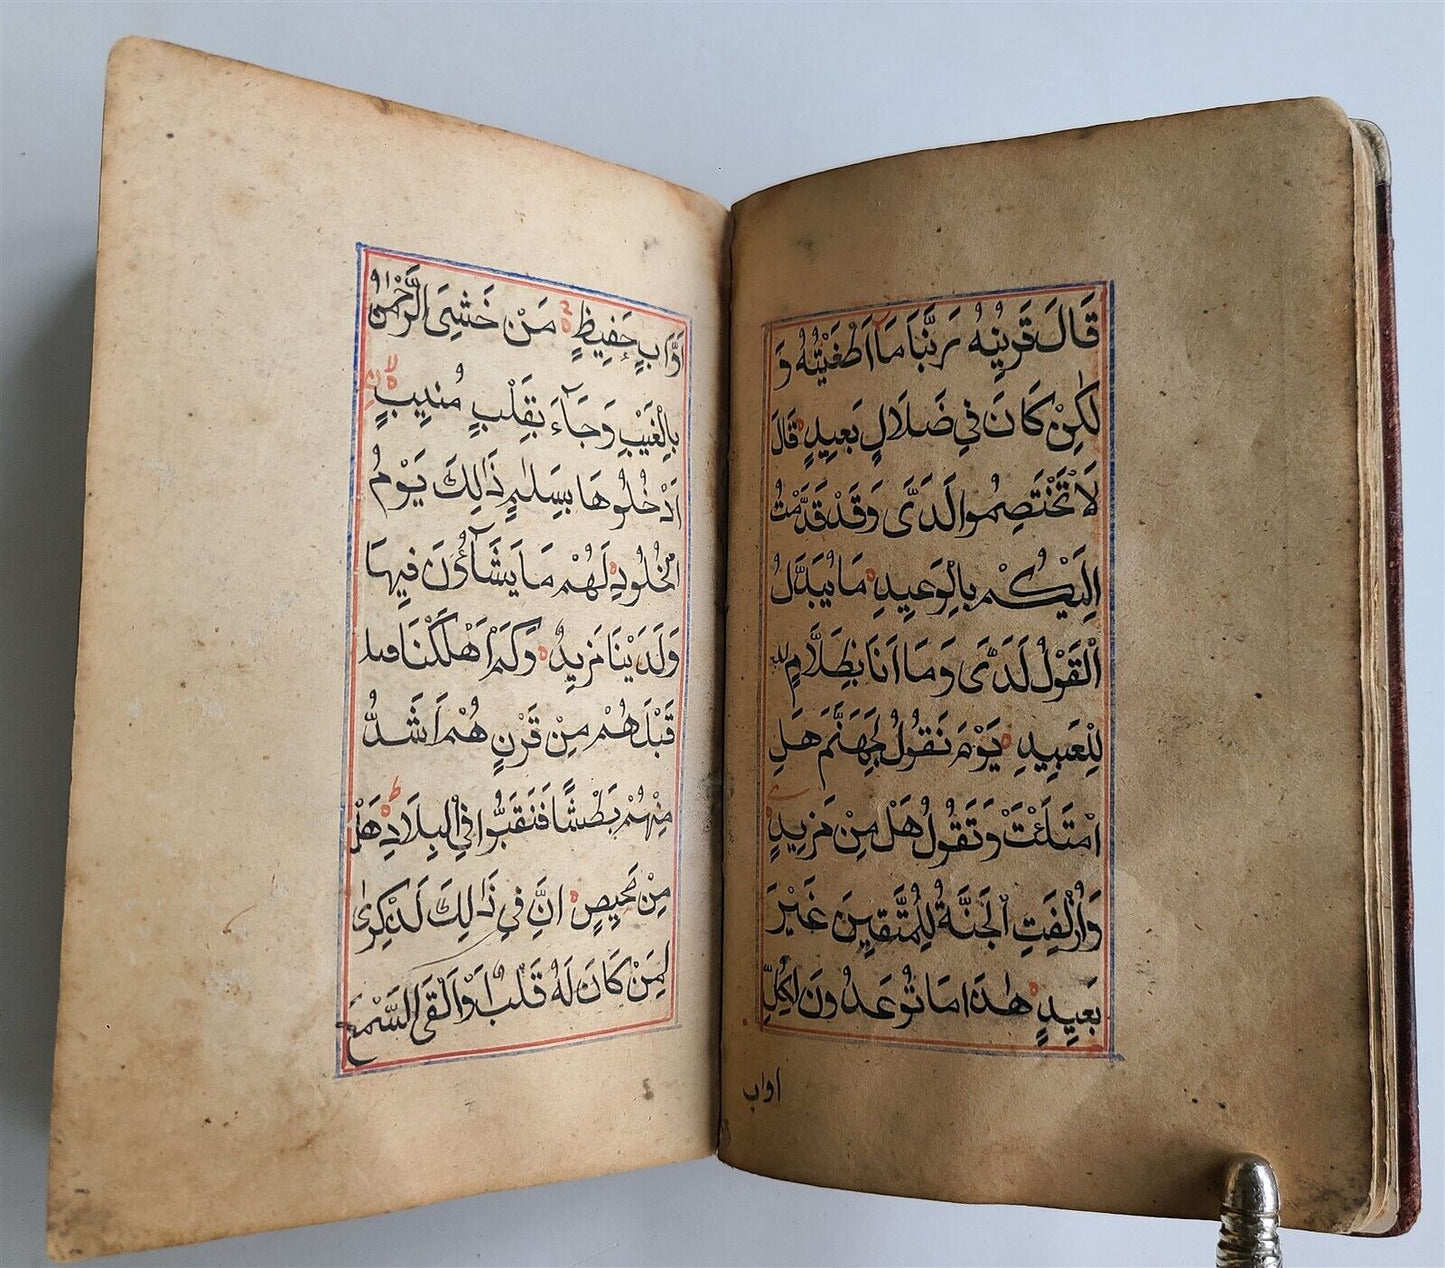 قَالَ قَرِينُهُ رَبَّنَا مَآ اَطْغَيْتُهُ وَ
لٰكِنْ كَانَ فِي ضَلَالٍ بَعِيدٍ قَالَ
لَا تَخْتَصِمُوا لَدَىَّ وَقَدْ قَدَّمْتُ
اِلَيْكُمْ بِالْوَعِيدِ مَا يُبَدَّلُ
الْقَوْلُ لَدَىَّ وَمَا اَنَا بِظَلَّامٍ
لِلْعَبِيدِ يَوْمَ نَقُولُ لِجَهَنَّمَ هَلِ
امْتَلَئْتِ وَتَقُولُ هَلْ مِنْ مَزِيدٍ
وَاُزْلِفَتِ الْجَنَّةُ لِلْمُتَّقِينَ غَيْرَ
بَعِيدٍ هٰذَا مَا تُوعَدُونَ لِكُلِّ
اواب
اَوَّابٍ حَفِيظٍ مَنْ خَشِىَ الرَّحْمٰنَ
بِالْغَيْبِ وَجَآءَ بِقَلْبٍ مُنِيبٍ
ادْخُلُوهَا بِسَلٰمٍ ذَالِكَ يَوْمُ
الْخُلُودِ لَهُمْ مَا يَشَآؤُنَ فِيهَا
وَلَدَيْنَا مَزِيدٌ وَكَمْ اَهْلَكْنَا
قَبْلَهُمْ مِنْ قَرْنٍ هُمْ اَشَدُّ
مِنْهُمْ بَطْشًا فَنَقَّبُوا فِي الْبِلَادِ هَلْ
مِنْ مَحِيصٍ اِنَّ فِي ذَالِكَ لَذِكْرٰى
لِمَنْ كَانَ لَهُ قَلْبٌ اَوْ اَلْقَى السَّمْعَ